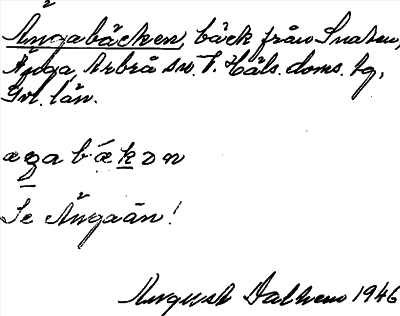 Ängabäcken, bäck från Snaten,
Njoga, Arbrå sn. V. Häls. doms. tg,
Gvl. län.
æŋabǽkən
Se Ängaån!
August Dalhem 1946